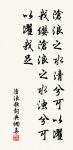 滄浪之水清兮可以濯
我纓滄浪之水濁兮可
以濯我足
滄浪歌